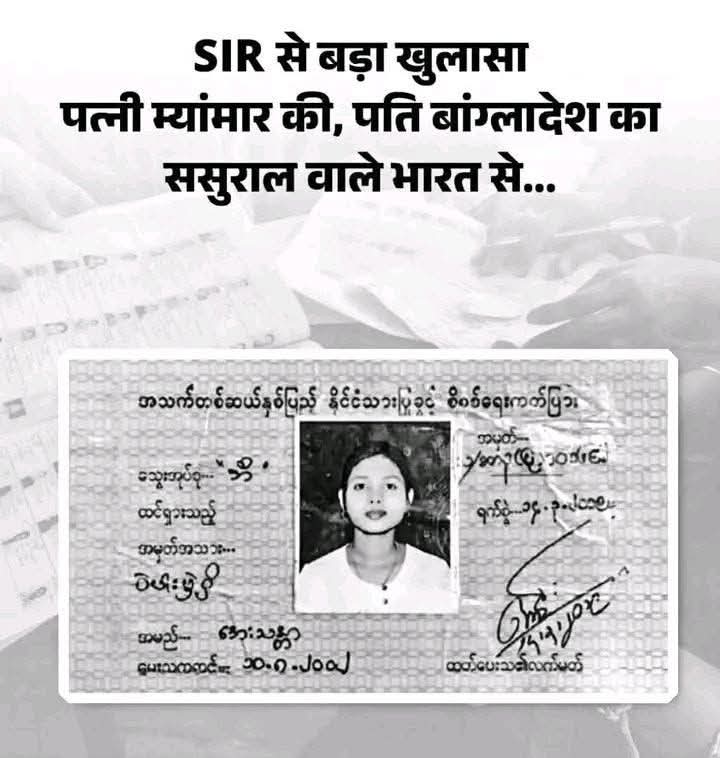 SIR से बड़ा खुलासा
पत्नी म्यांमार की, पति बांग्लादेश का
ससुराल वाले भारत से...
အသက်တစ်ဆယ်နှစ်ပြည့် နိုင်ငံသားပြုခွင့် စိစစ်ရေးကတ်ပြား
အမှတ်
သွေးအုပ်စု... "ဘီ"
ထင်ရှားသည့်
ရက်စွဲ
အမှတ်အသား...
အမည် အေးသန္တာ
မွေးသက္ကရာဇ် ၁၀.၈.၂၀၀၂
ထုတ်ပေးသူ၏လက်မှတ်